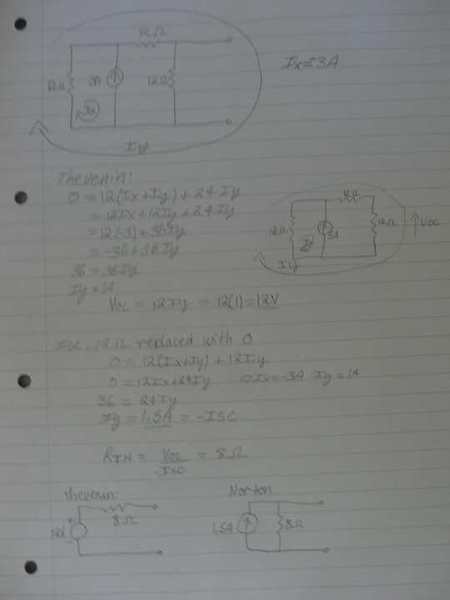 12Ω
12Ω
3A
12Ω
Ix
Iy
Ix=-3A
Thevenin:
0 = 12(Ix+Iy) + 24Iy
= 12Ix+12Iy+24Iy
= 12(-3)+36Iy
= -36+36Iy
36 = 36Iy
Iy = 1A
Voc = 12Iy = 12(1) = 12V
12Ω
12Ω
3A
12Ω
Voc
Iy
12Ω replaced with 0
0 = 12(Ix+Iy) + 12Iy
0 = 12Ix+24Iy Ix=-3A Iy=1A
36 = 24Iy
Iy = 1.5A = -ISC
RTH = Voc = 8Ω
-Isc
Thevenin:
8Ω
12V
Norton
1.5A
8Ω